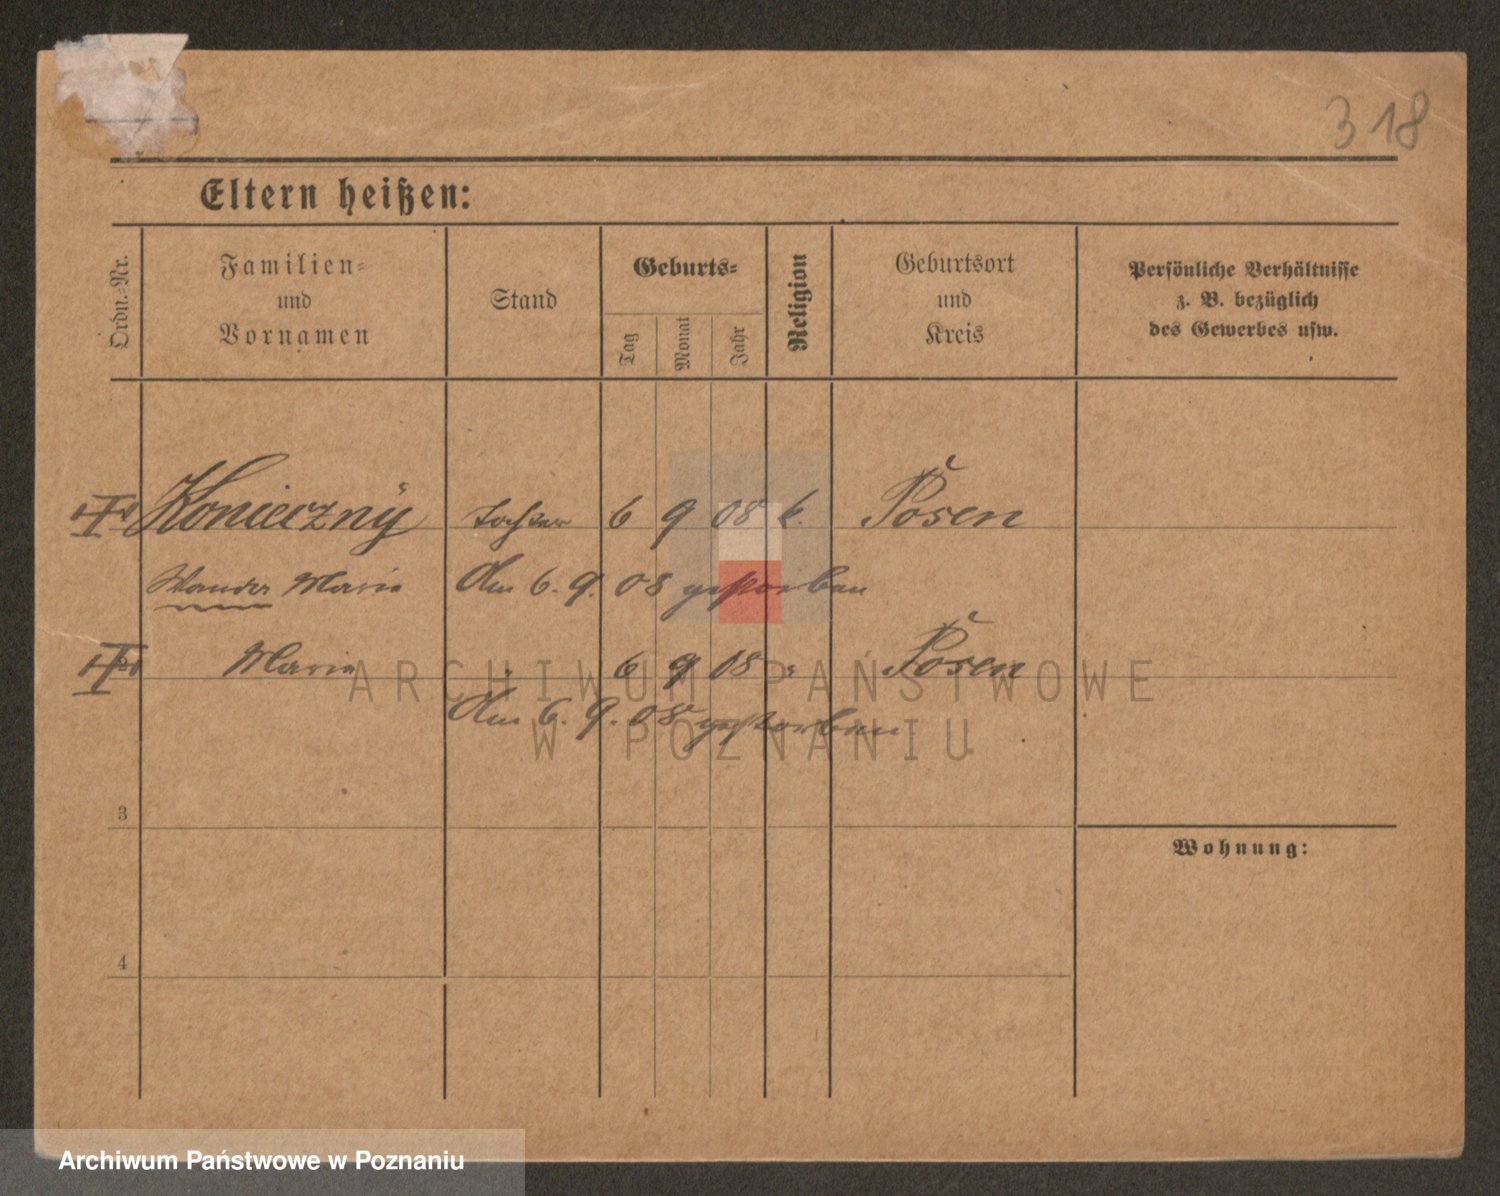 318
Eltern heißen:
Ordn.-Nr.
Familien-
und
Vornamen
Stand
Geburts-
Tag
Monat
Jahr
Religion
Geburtsort
und
Kreis
Persönliche Verhältnisse
z. B. bezüglich
des Gewerbes usw.
Konieczny Tochter 6 9 08 k. Posen
Wanda Marie Am 6. 9. 08 gestorben
Marie 6 9 08 Posen
Am 6. 9. 08 gestorben
3
4
Wohnung:
ARCHIWUM PAŃSTWOWE
W POZNANIU
Archiwum Państwowe w Poznaniu